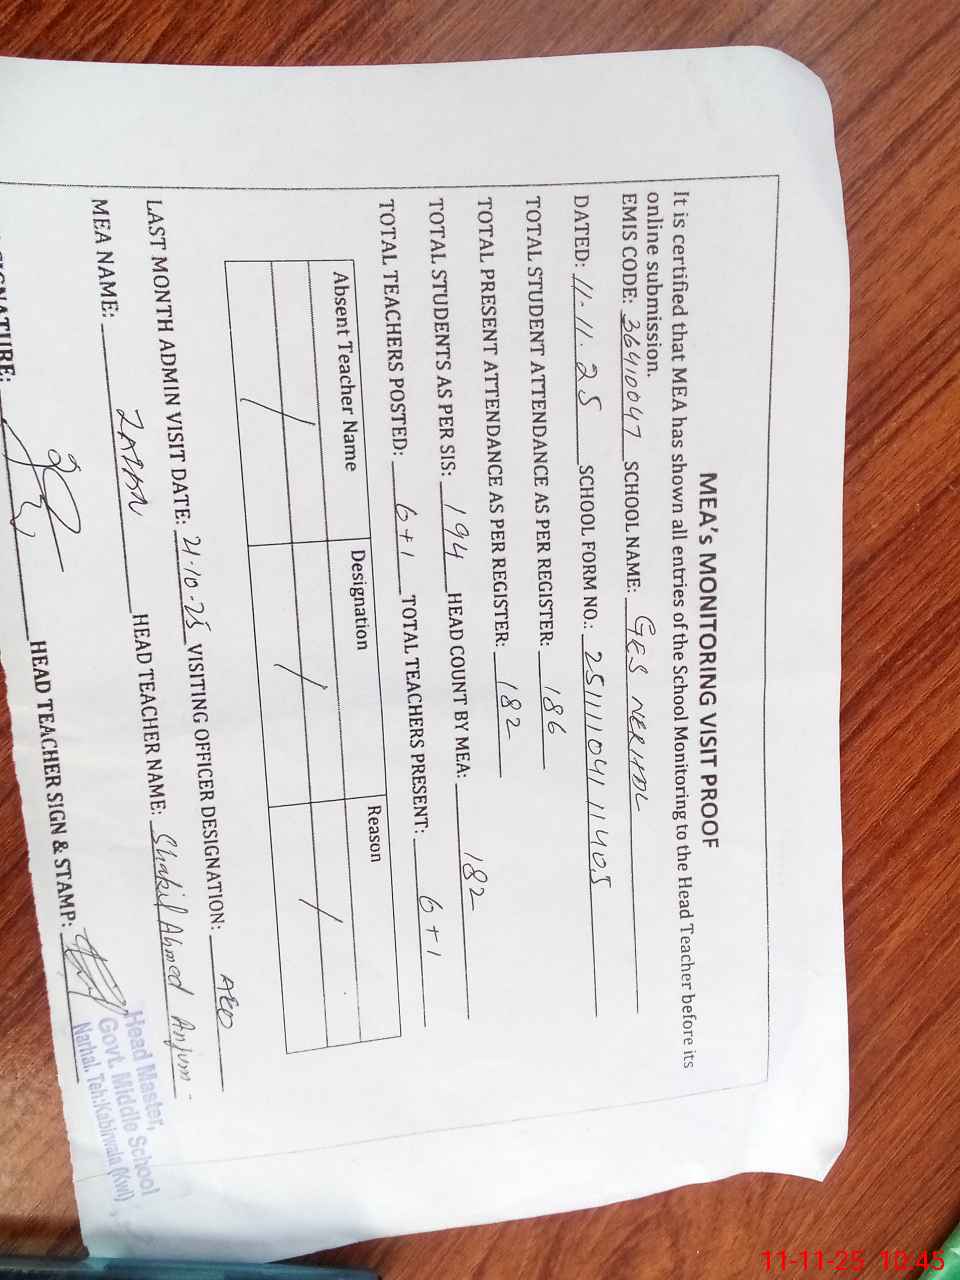 MEA's MONITORING VISIT PROOF
It is certified that MEA has shown all entries of the School Monitoring to the Head Teacher before its
online submission.
EMIS CODE: 36410047 SCHOOL NAME: GES NERHAL
DATED: 11.11.25 SCHOOL FORM NO.: 25111104111405
TOTAL STUDENT ATTENDANCE AS PER REGISTER: 186
TOTAL PRESENT ATTENDANCE AS PER REGISTER: 182
TOTAL STUDENTS AS PER SIS: 194 HEAD COUNT BY MEA: 182
TOTAL TEACHERS POSTED: 6+1 TOTAL TEACHERS PRESENT: 6+1
Absent Teacher Name Designation Reason
/ / /
LAST MONTH ADMIN VISIT DATE: 21-10-25 VISITING OFFICER DESIGNATION: AEO
MEA NAME: HEAD TEACHER NAME: Shakil Ahmed Anjum
SIGNATURE: HEAD TEACHER SIGN & STAMP:
Head Master,
Govt. Middle School
Narhal. Teh:Kabirwala (Kwl)
11-11-25 10:45